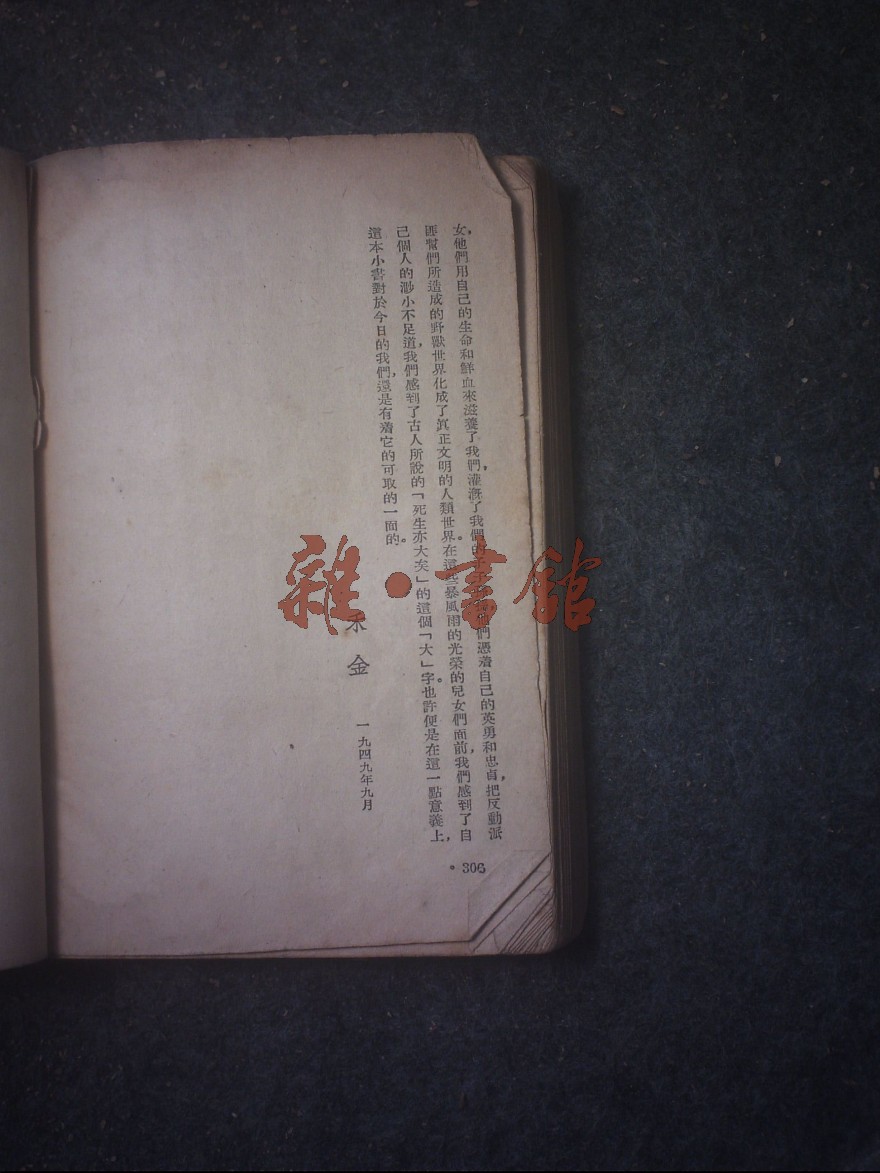 女，他們用自己的生命和鮮血來滋養了我們，灌漑了我們的 們憑着自己的英勇和忠貞，把反動派
匪幫們所造成的野獸世界化成了眞正文明的人類世界。在這些暴風雨的光榮的兒女們面前，我們感到了自
己個人的渺小不足道，我們感到了古人所說的「死生亦大矣」的這個「大」字。也許便是在這一點意義上，
這本小書對於今日的我們，還是有着它的可取的一面的。
金
一九四九年九月
• 306
雜•書館